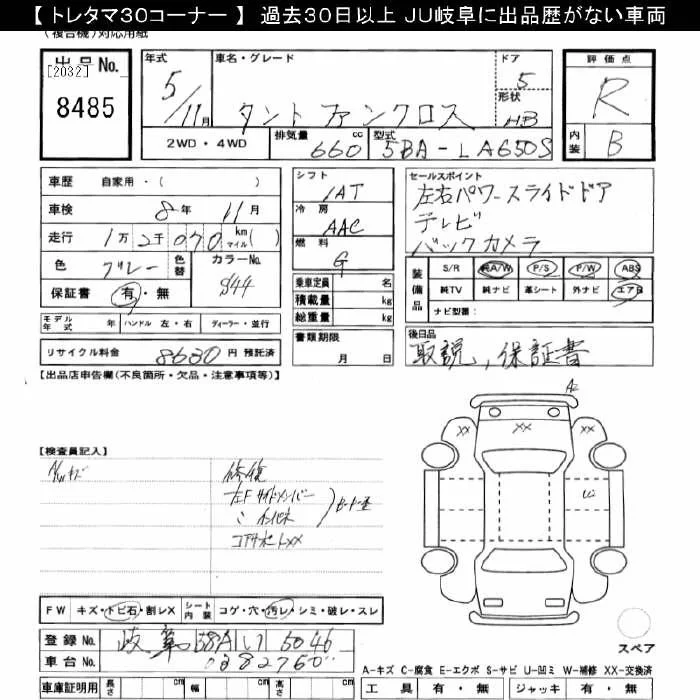 【 トレタマ30コーナー 】 過去30日以上 JU岐阜に出品歴がない車両
(複合機)対応用紙
出品No. [2032] 8485
年式 5/11月
車名・グレード タント ファンクロス
ドア 5
形状 HB
評価点 R
内装 B
2WD・4WD 排気量 660 cc 型式 5BA-LA650S
車歴 自家用・( )
車検 8年 11月
走行 1万2千070 km マイル( )
色 グレー 色替 カラーNo. S44
保証書 有・無
シフト 1AT
冷房 AAC
燃料 G
乗車定員 名
積載量 kg
総重量 kg
セールスポイント
左右パワースライドドア
テレビ
バックカメラ
装備品 S/R 純A/W P/S P/W ABS
純TV 純ナビ 革シート 外ナビ エアB
ナビ型番:
モデル年式 年 ハンドル 左・右 ディーラー・並行
リサイクル料金 8630 円 預託済
書類期限 月 日
後日品
取説,保証書
【出品店申告欄(不良箇所・欠品・注意事項等)】
【検査員記入】
A/Wキズ
修復
左Fサイドメンバー
コアサポートXX
A2
XX XX XX
FW キズ・トビ石・割レX シート内装 コゲ・穴・汚レ・シミ・破レ・スレ
登録No. 岐阜 58A い 5046
車台No. 0382760
車庫証明用 長さ cm 幅 cm 高さ cm
スペア
A-キズ C-腐食 E-エクボ S-サビ U-凹ミ W-補修 XX-交換済
工具 有・無 ジャッキ 有・無